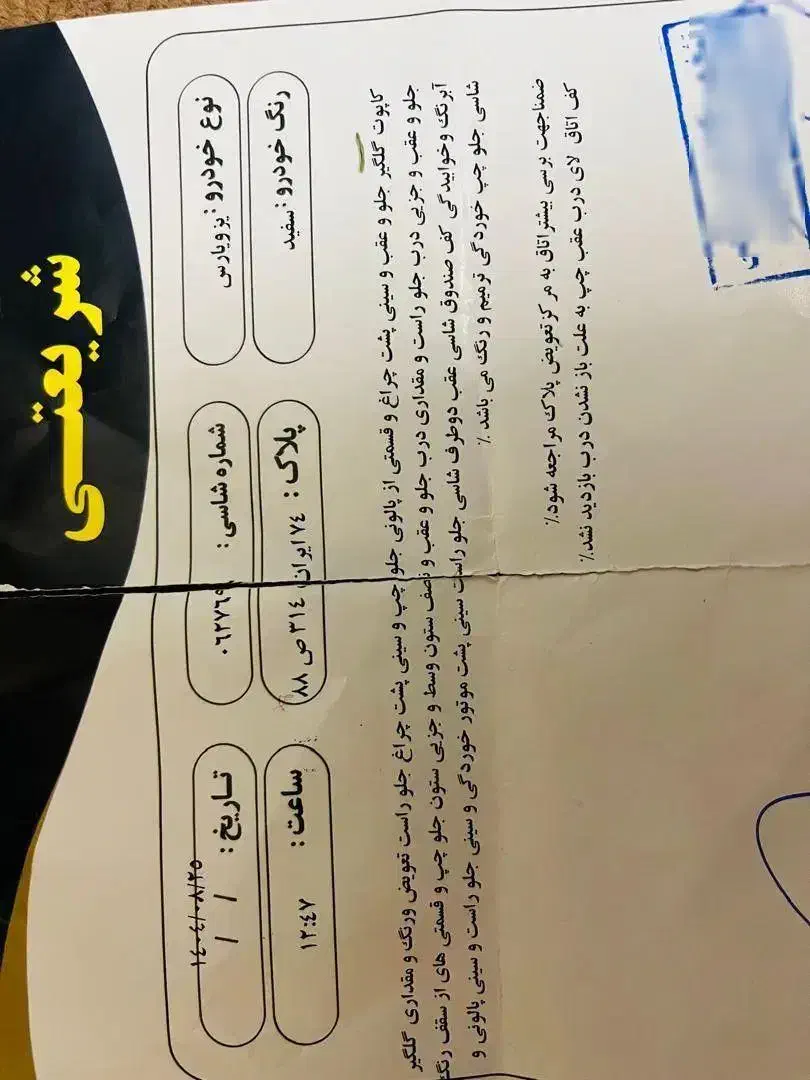 شریعتی
نوع خودرو: پژوپارس
شماره شاسی: ٠٦٢٧٦٩
تاریخ: / / ١٤٠٤/٠٨/٢٥
رنگ خودرو: سفید
پلاک: ٧٤ ایران ٣١٤ ص ٨٨
ساعت: ١٢:٤٧
کاپوت گلگیر جلو و عقب و سینی پشت چراغ و قسمتی از پالونی جلو چپ و سینی پشت چراغ جلو راست تعویض ورنگ و مقداری گلگیر
جلو و عقب و جزیی درب جلو راست و مقداری درب جلو و عقب و نصف ستون وسط و جزیی ستون جلو چپ و قسمتی های از سقف رنگ
آبرنگ وخوابیدگی کف صندوق شاسی عقب دوطرف شاسی جلو راست سینی پشت موتور خوردگی و سینی جلو راست و سینی پالونی و
شاسی جلو چپ خوردگی ترمیم و رنگ می باشد ٪
ضمناجهت برسی بیشتراتاق به مرکزتعویض پلاک مراجعه شود٪
کف اتاق لای درب عقب چپ به علت باز نشدن درب بازدید نشد٪